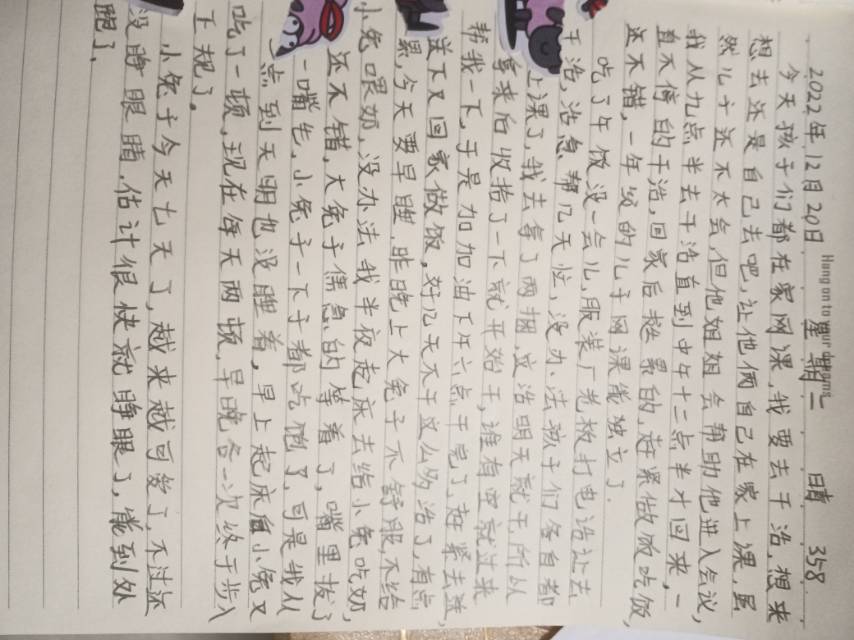 Hang on to your dreams
2022年12月20日 星期二 晴 358.
今天孩子们都在家网课,我要去干活,想来
想去还是自己去吧,让他俩自己在家上课,虽
然儿子还不太会,但他姐姐会帮助他进入会议,
我从九点半去干活直到中午十二点半才回来,一
直不停的干活,回家后挺累的,赶紧做饭吃饭,
还不错,一年级的儿子网课能独立了.
吃了午饭没一会儿,服装厂老板打电话让去
干活,活急帮几天忙,没办法孩子们各自都
上课了,我去拿了两捆,这活明天就干,所以
拿来后收拾了一下就开始干,谁有空就过来
帮我一下,于是加加油下午六点干完了,赶紧去送,
送下又回家做饭,好几天不干这么多活了,有点
累,今天要早睡,昨晚上大兔子不舒服,不给
小兔喂奶,没办法我半夜起床去给小兔吃奶,
还不错,大兔子儒急的等着了,嘴里拔了
一嘴毛,小兔子一下子都吃饱了,可是我从
点到天明也没睡着,早上起床看小兔又
吃了一顿,现在每天两顿,早晚各一次终于步入
正规了.
小兔子今天七天了,越来越可爱了,不过还
没睁眼睛,估计很快就睁眼了,能到处
跑了.